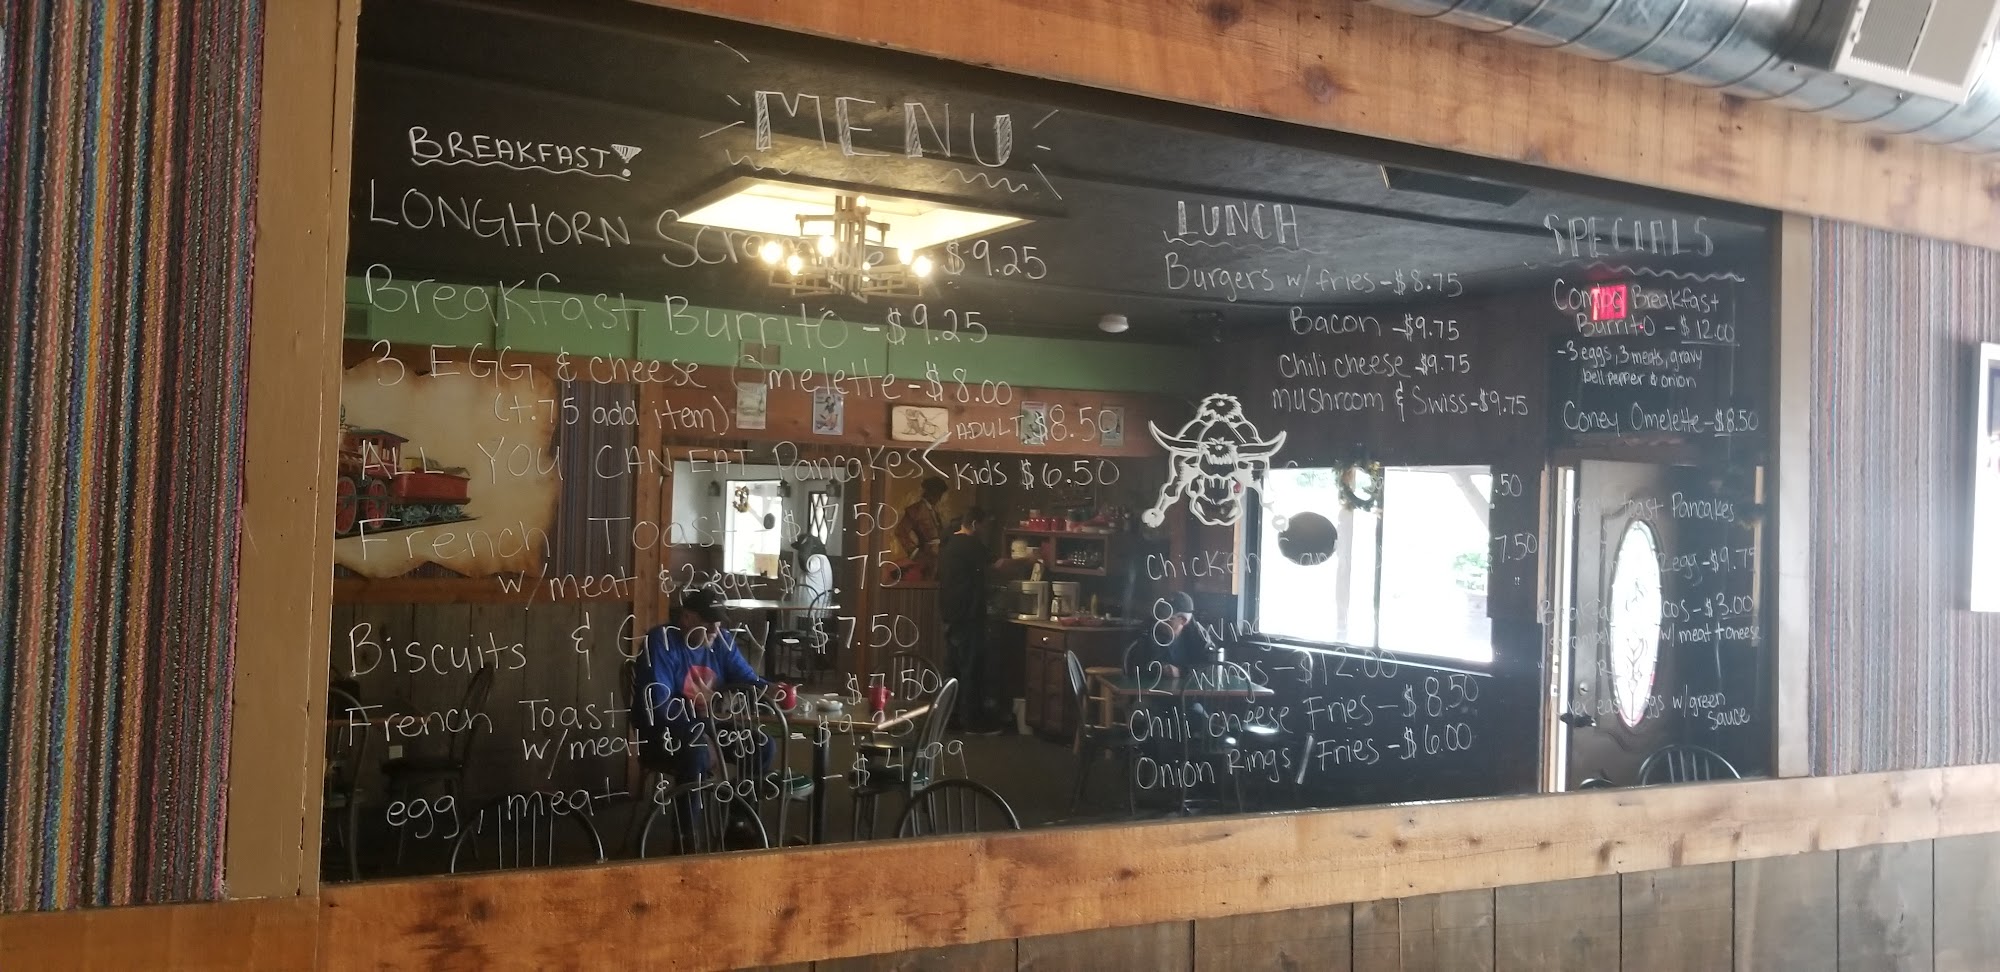 MENU
BREAKFAST!
LONGHORN Scramble $9.25
Breakfast Burrito - $9.25
3 EGG & cheese Omelette - $8.00
(+.75 add item)
ALL YOU CAN EAT Pancakes < ADULT $8.50
Kids $6.50
French Toast $7.50
w/meat & 2 egg - $9.75
Biscuits & Gravy $7.50
French Toast Pancake - $7.50
w/meat & 2 eggs - $9.25
egg, meat & toast - $4.99
LUNCH
Burgers w/fries - $8.75
Bacon - $9.75
Chili cheese - $9.75
mushroom & Swiss - $9.75
.50
Chicken 7.50
8 wings
12 wings - $12.00
Chili cheese Fries - $8.50
Onion Rings / Fries - $6.00
SPECIALS
Combo Breakfast
Burrito - $12.00
- 3 eggs, 3 meats, gravy
bell pepper & onion
Coney Omelette - $8.50
Toast Pancakes
2 egg - $9.75
$3.00
w/ meat + cheese
w/green
sauce